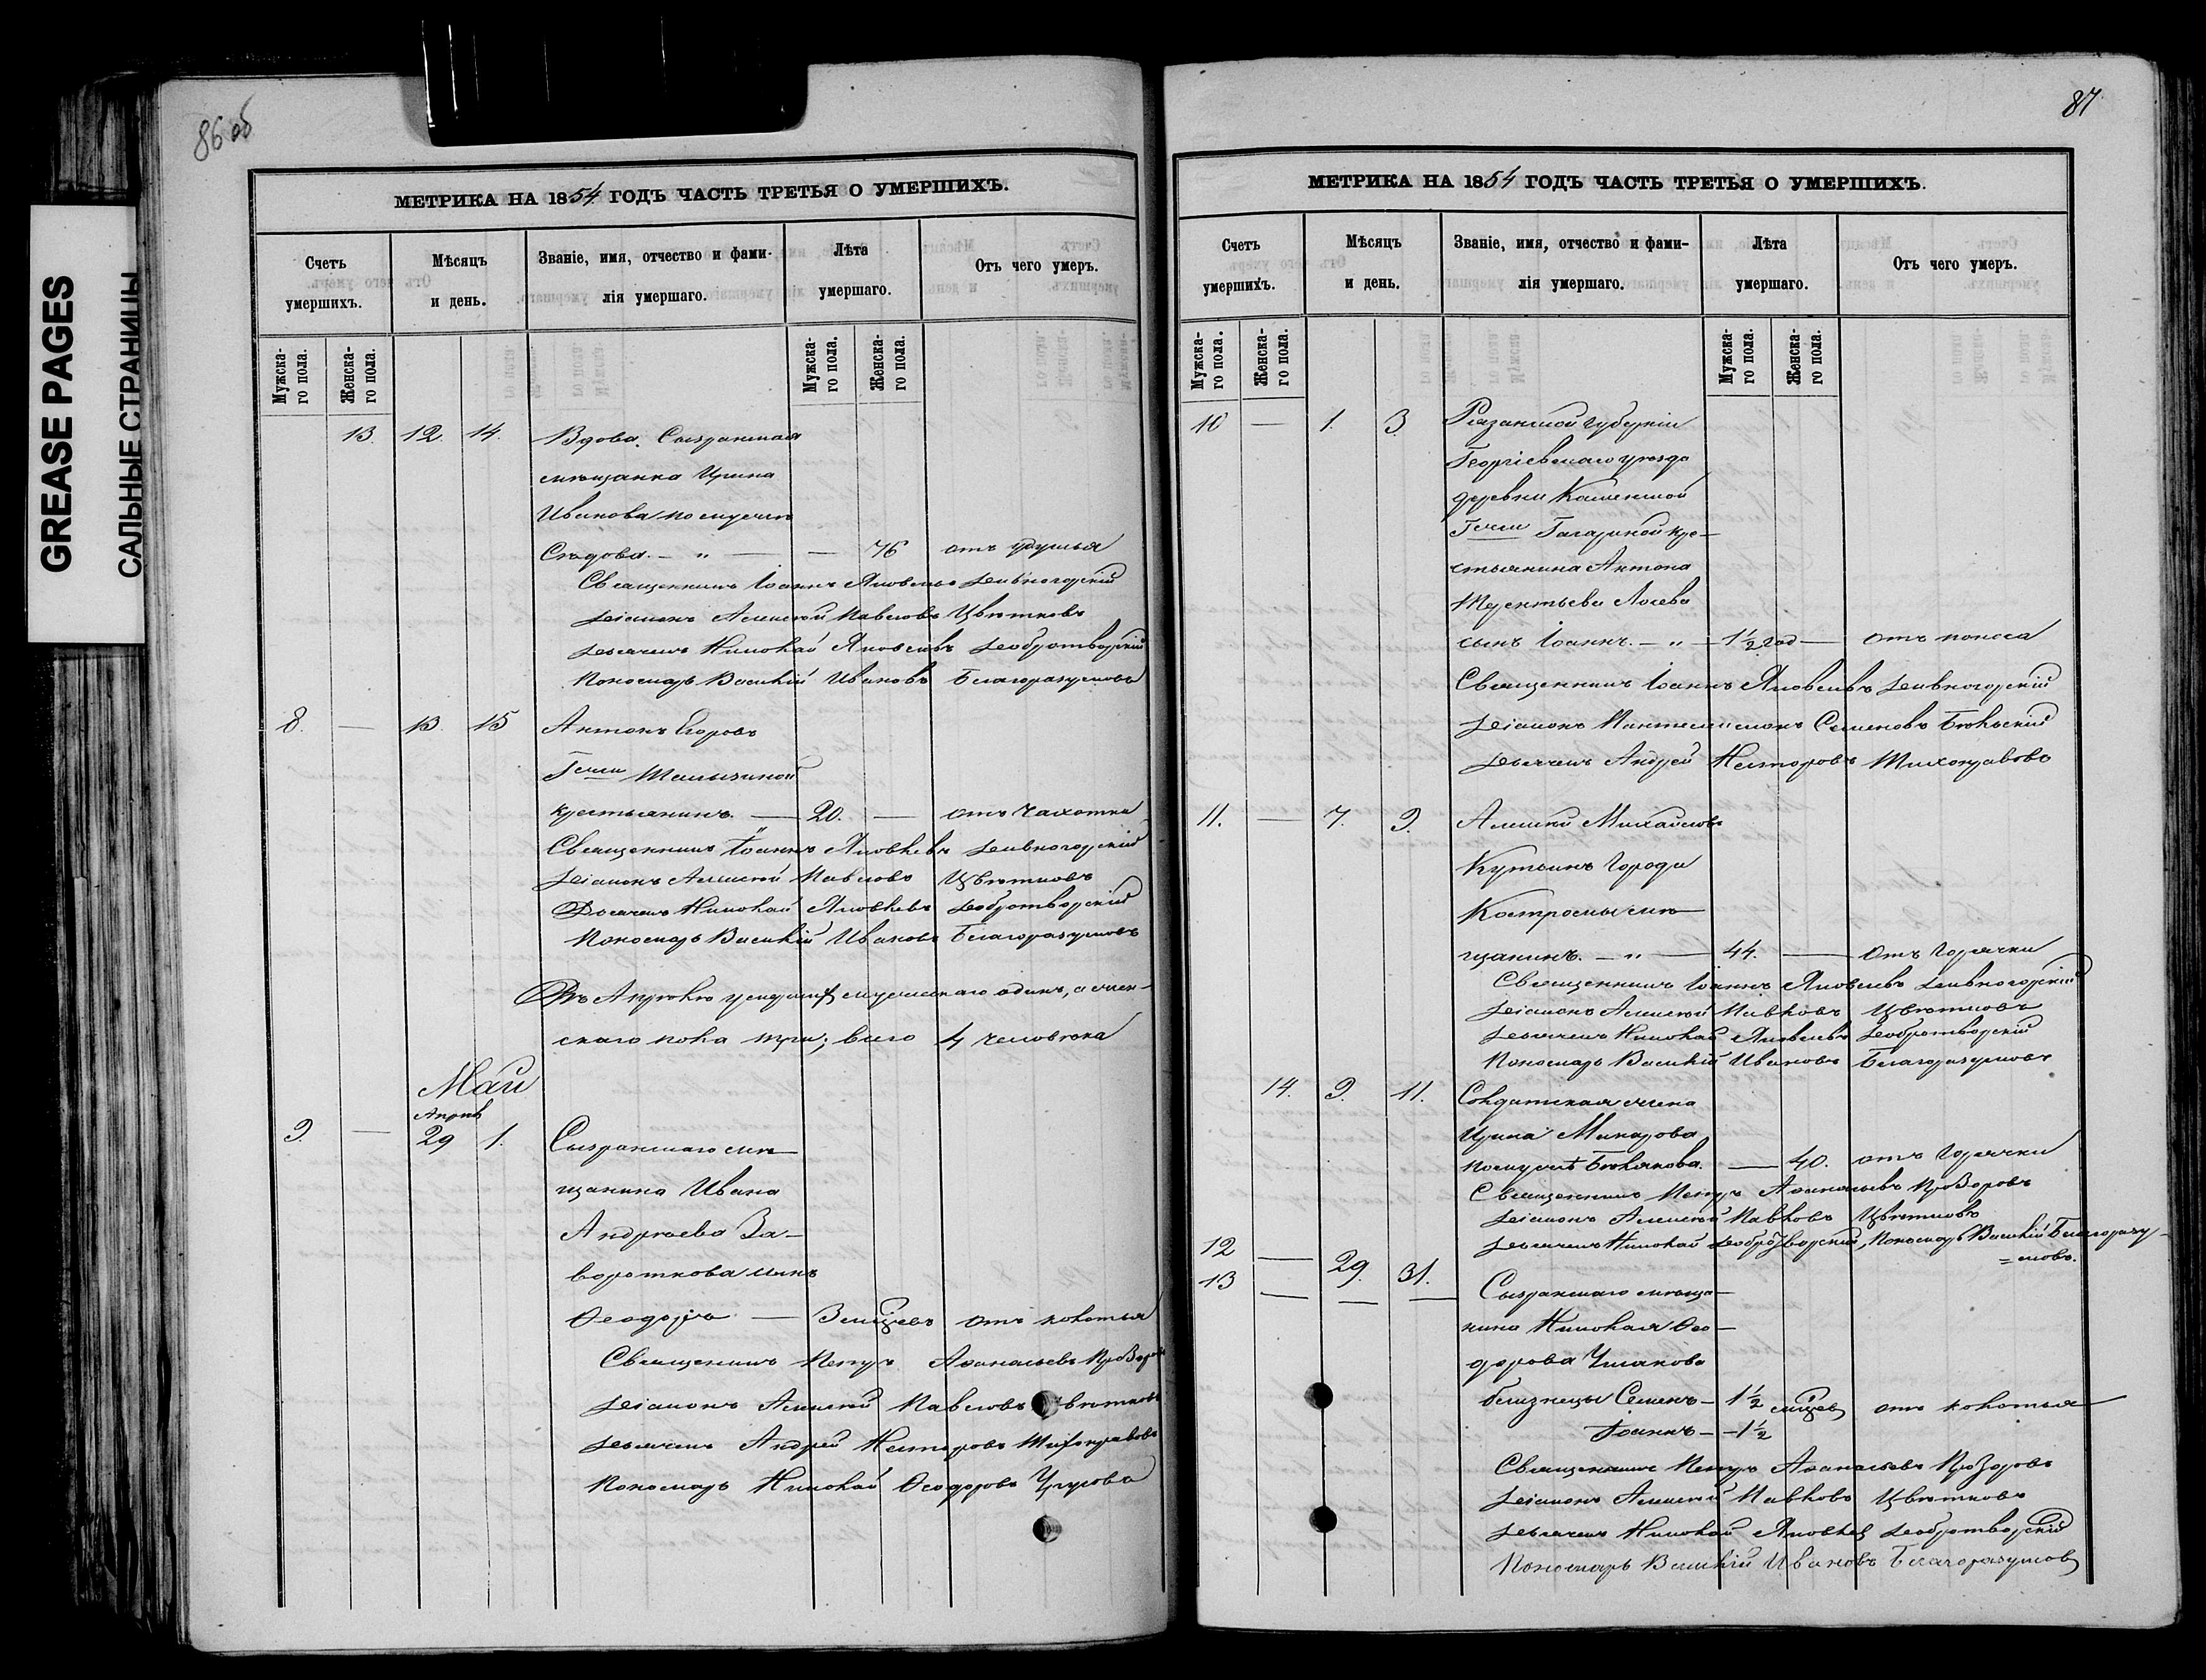 GREASE PAGES
САЛЬНЫЕ СТРАНИЦЫ
86 об
МЕТРИКА НА 1854 ГОДЪ ЧАСТЬ ТРЕТЬЯ О УМЕРШИХЪ.
Счетъ умершихъ.
Мѣсяцъ и день.
Званіе, имя, отчество и фами-
лія умершаго.
Лѣта умершаго.
Отъ чего умеръ.
Мужска-
го пола.
Женска-
го пола.
Мужска-
го пола.
Женска-
го пола.
13. 12. 14. Вдова Сызранская
мѣщанка Ирина
Иванова по мужѣ
Сѣдова. — " — — 76 отъ удушья
Священникъ Іоаннъ Яковлевъ Дивногорскій
Діаконъ Алексѣй Павловъ Цвѣтковъ
Дьячекъ Николай Яковлевъ Добротворскій
Пономарь Василій Ивановъ Благоразумовъ
8. — 13. 15 Антонъ Егоровъ
Гжи
крестьянинъ. — 20. — отъ чахотки
Священникъ Іоаннъ Яковлевъ Дивногорскій
Діаконъ Алексѣй Павловъ Цвѣтковъ
Дьячекъ Николай Яковлевъ Добротворскій
Пономарь Василій Ивановъ Благоразумовъ
Въ Апрѣлѣ мужескаго одинъ, а жен-
скаго пола три; всего 4 человѣка
Май
Апрѣл
9. — 29 1. Сызранскаго мѣ—
щанина Ивана
Андреева За—
вороткова сынъ
Ѳеодоръ — 3 мѣсяцевъ отъ колотья
Священникъ Петръ Аѳанасьевъ Прозоровъ
Діаконъ Алексѣй Павловъ Цвѣтковъ
Дьячекъ Андрей Несторовъ Тихонравовъ
Пономарь Николай Ѳеодоровъ
87
МЕТРИКА НА 1854 ГОДЪ ЧАСТЬ ТРЕТЬЯ О УМЕРШИХЪ.
Счетъ умершихъ.
Мѣсяцъ и день.
Званіе, имя, отчество и фами-
лія умершаго.
Лѣта умершаго.
Отъ чего умеръ.
Мужска-
го пола.
Женска-
го пола.
Мужска-
го пола.
Женска-
го пола.
10 — 1. 3. Рязанской губерніи
Георгіевскаго уѣзда
деревни Каменкой
Гжи Гагариной кре—
стьянина Антона
Терентьева Лосева
сынъ Іоаннъ. — " — 1½ год — отъ поноса
Священникъ Іоаннъ Яковлевъ Дивногорскій
Діаконъ Пантелеимонъ Семеновъ Бѣльскій
Дьячекъ Андрей Несторовъ Тихонравовъ
11. — 7. 9. Алексѣй Михайловъ
Кутьинъ города
Костромы мѣ—
щанинъ. — " — 44. — отъ горячки
Священникъ Іоаннъ Яковлевъ Дивногорскій
Діаконъ Алексѣй Павловъ Цвѣтковъ
Дьячекъ Николай Яковлевъ Добротворскій
Пономарь Василій Ивановъ Благоразумовъ
14. 9. 11. Солдатская жена
Ирина Макарова
по мужѣ Бѣлякова. — 40. отъ горячки
Священникъ Петръ Аѳанасьевъ Прозоровъ
Діаконъ Алексѣй Павловъ Цвѣтковъ
Дьячекъ Николай Добротворскій, Пономарь Василій Благоразу—
=мовъ.
12 — 29. 31.
13 — — — Сызранскаго мѣща—
нина Николая Ѳео—
дорова Чижакова
близнецы Семенъ — 1½ мѣсяцев отъ колотья
Іоаннъ — 1½
Священникъ Петръ Аѳанасьевъ Прозоровъ
Діаконъ Алексѣй Павловъ Цвѣтковъ
Дьячекъ Николай Яковлев Добротворскій
Пономарь Василій Ивановъ Благоразумов